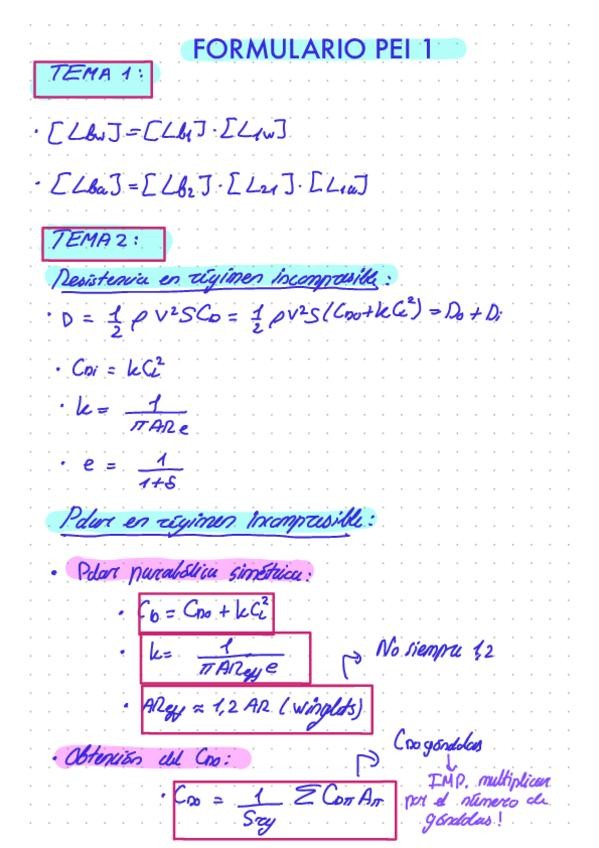 FORMULARIO PEI 1
TEMA 1:
· [Lbw] = [Lb1] · [L1w]
· [Lba] = [Lb2] · [L21] · [L1a]
TEMA 2:
Resistencia en régimen incompresible:
· D = 1/2 ρ V² S C_D = 1/2 ρ V² S (C_D0 + k C_L²) = D_0 + D_i
· C_Di = k C_L²
· k = 1/(π AR e)
· e = 1/(1+δ)
Polar en régimen incompresible:
· Polar parabólica simétrica:
· C_D = C_D0 + k C_L²
· k = 1/(π AR_eff e)
No siempre 1,2
· AR_eff ≈ 1,2 AR (winglets)
· Obtención del C_D0:
C_D0 góndolas
IMP. multiplicar
por el número de
góndolas!
· C_D0 = 1/S_ref Σ C_Dπ A_π